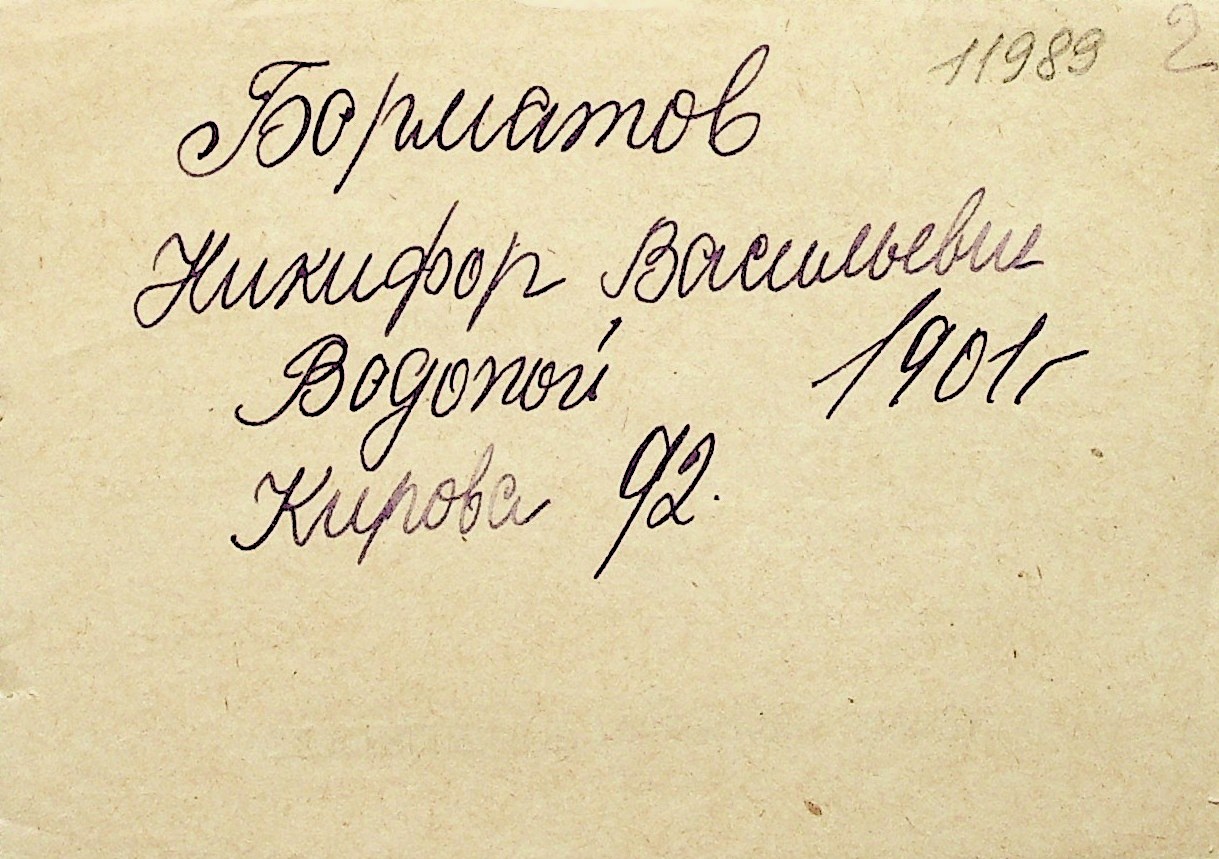 11989 2
Борматов
Никифор Васильевич
Водопой 1901г
Кирова 92.